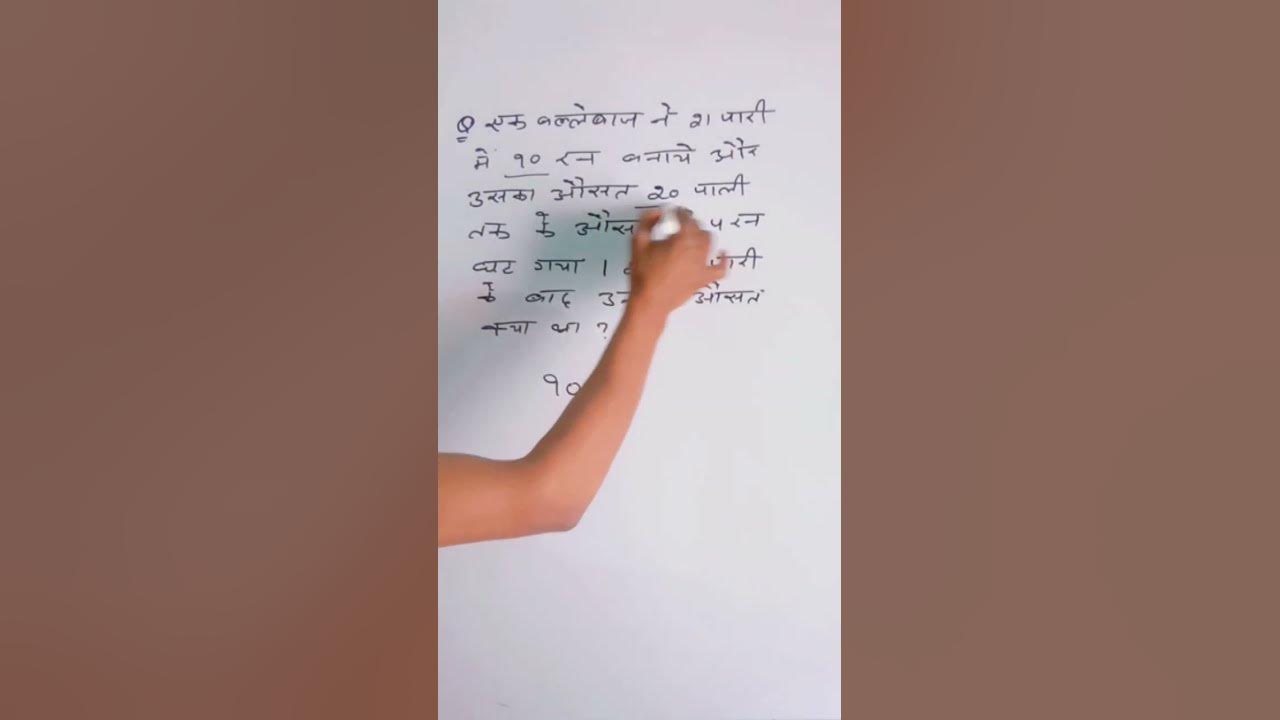 Q एक बल्लेबाज ने २१ पारी
में १० रन बनाये और
उसका औसत २० पाली
तक के ५ रन
घट गया । पारी
के बाद औसत
क्या था ?
१०